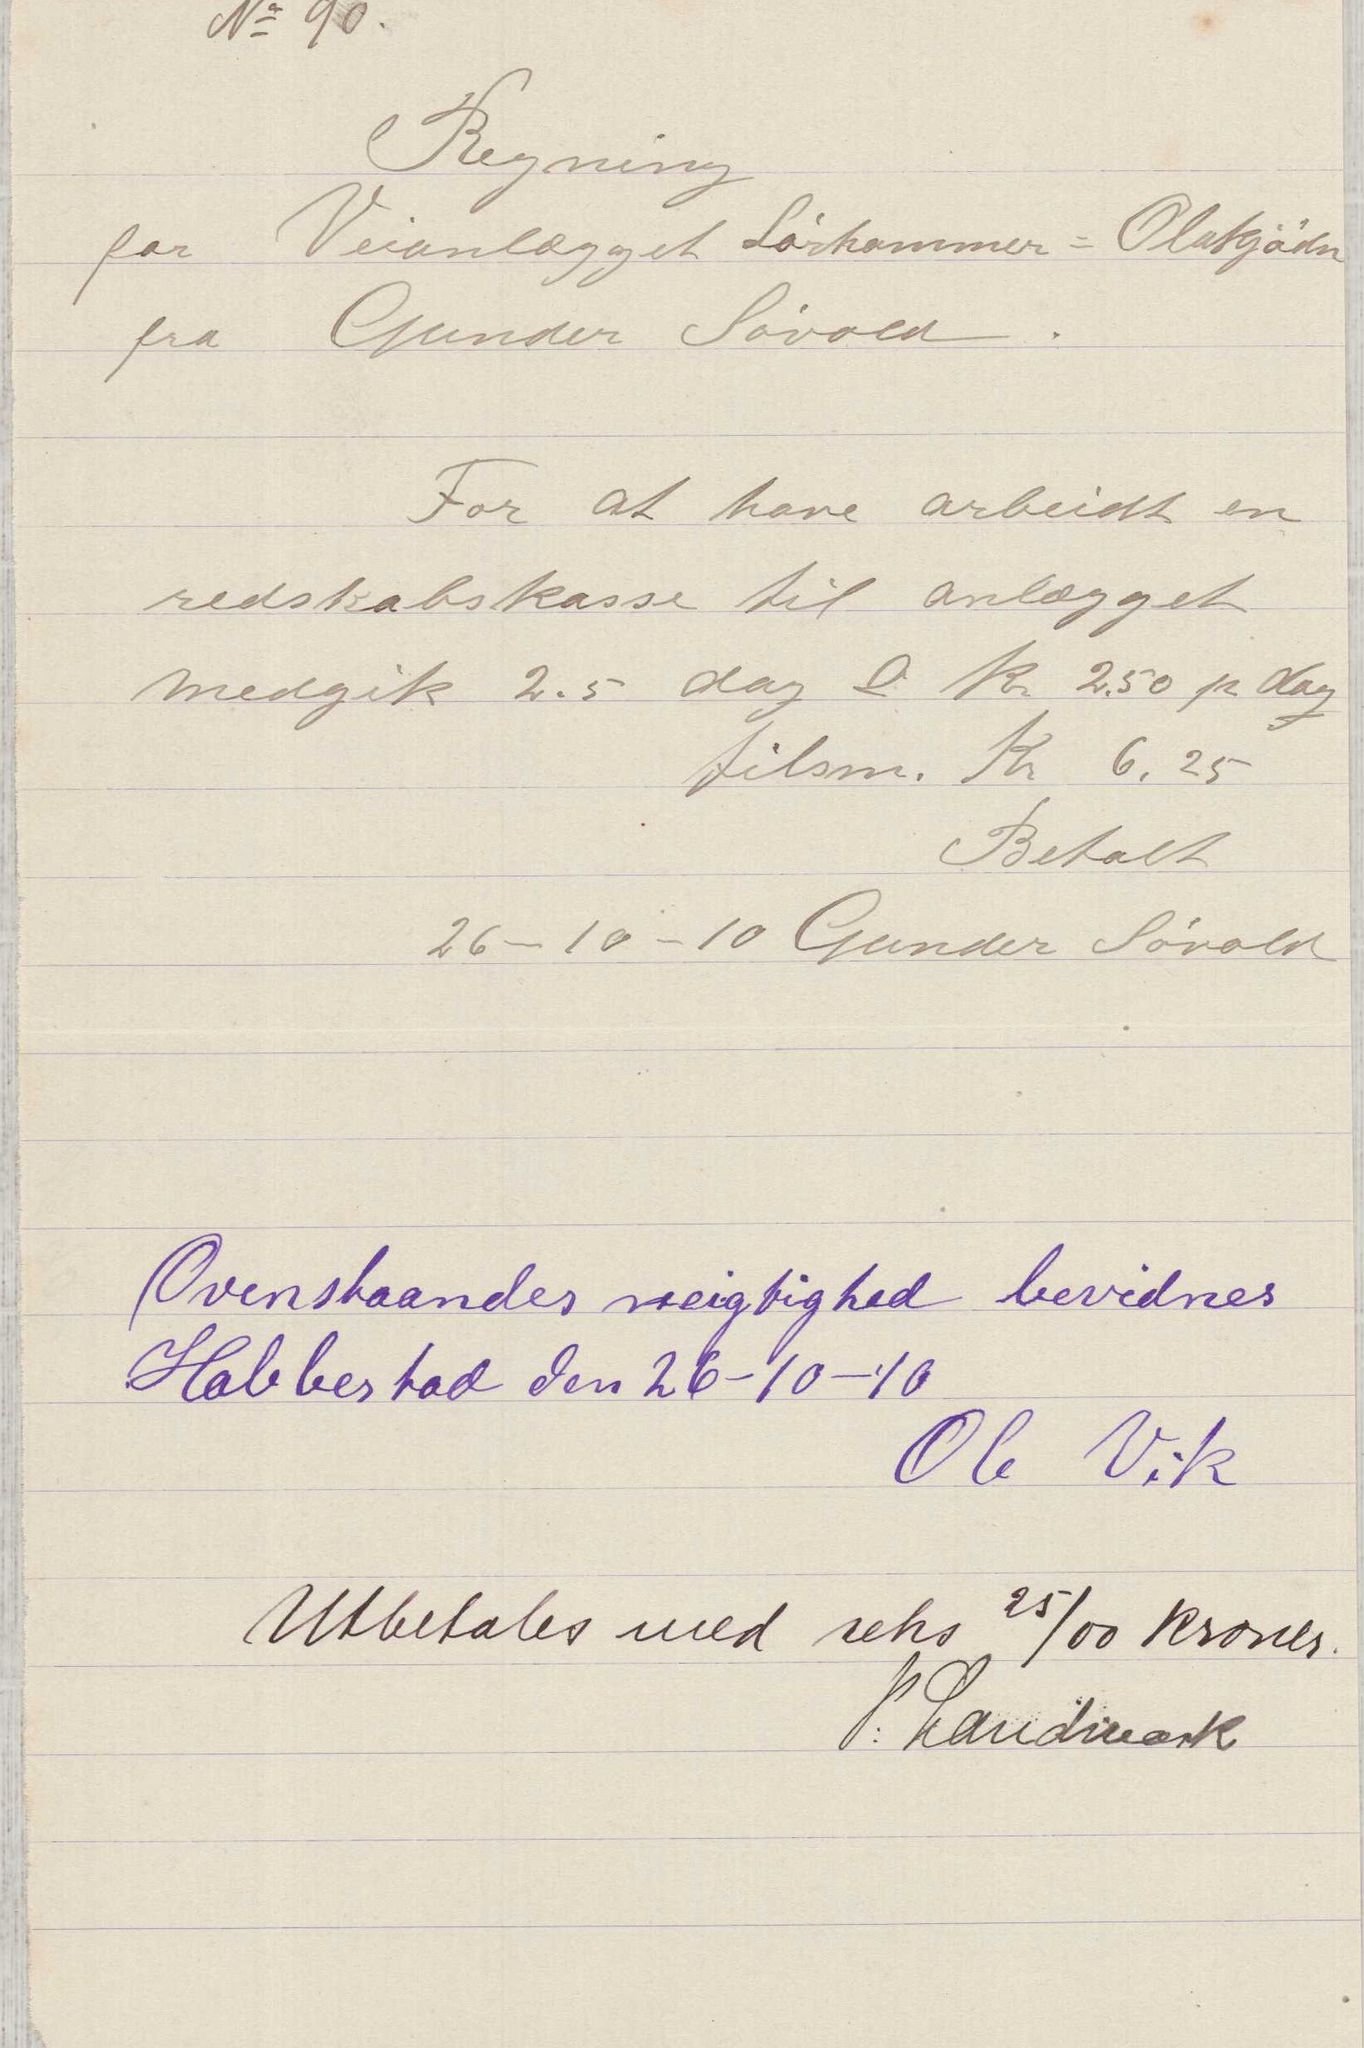 No 90.
Regning
for Veianlægget Sørhammer = Olakjødn
fra Gunder Søvold.
For at have arbeidt en
redskabskasse til anlægget
medgik 2.5 dag a Kr 2.50 pr dag
tilsm. Kr 6.25
Betalt
26-10-10 Gunder Søvold
Ovenstaandes rreigtighed bevidnes
Habbestad den 26-10-10
Ole Vik
Utbetales med seks 25/00 kroner.
P. Landmark